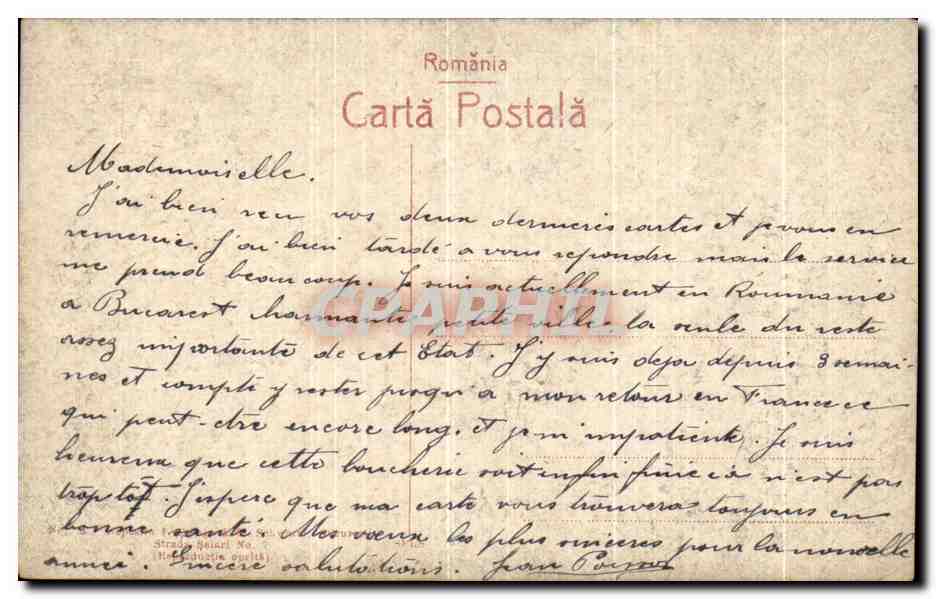 România
Cartă Postală
Mademoiselle.
J'ai bien reçu vos deux dernieres cartes et je vous en
remercie. J'ai bien tardé a vous repondre mais le service
me prend beaucoup. Je suis actuellement en Roumanie
a Bucarest charmante petite ville, la seule du reste
assez importante de cet Etat. J'y suis deja depuis 3 semai-
nes et compte y rester jusqu'a mon retour en France ce
qui peut-etre encore long. et je m'impatiente. Je suis
heureux que cette boucherie soit enfin finie ce n'est pas
trop tot. J'espere que ma carte vous trouvera toujours en
bonne santé. Mes voeux les plus sinceres pour la nouvelle
Strada Șelari No.
année. Sincere salutations. Jean
(Reproducția oprită)
CPAPHIL